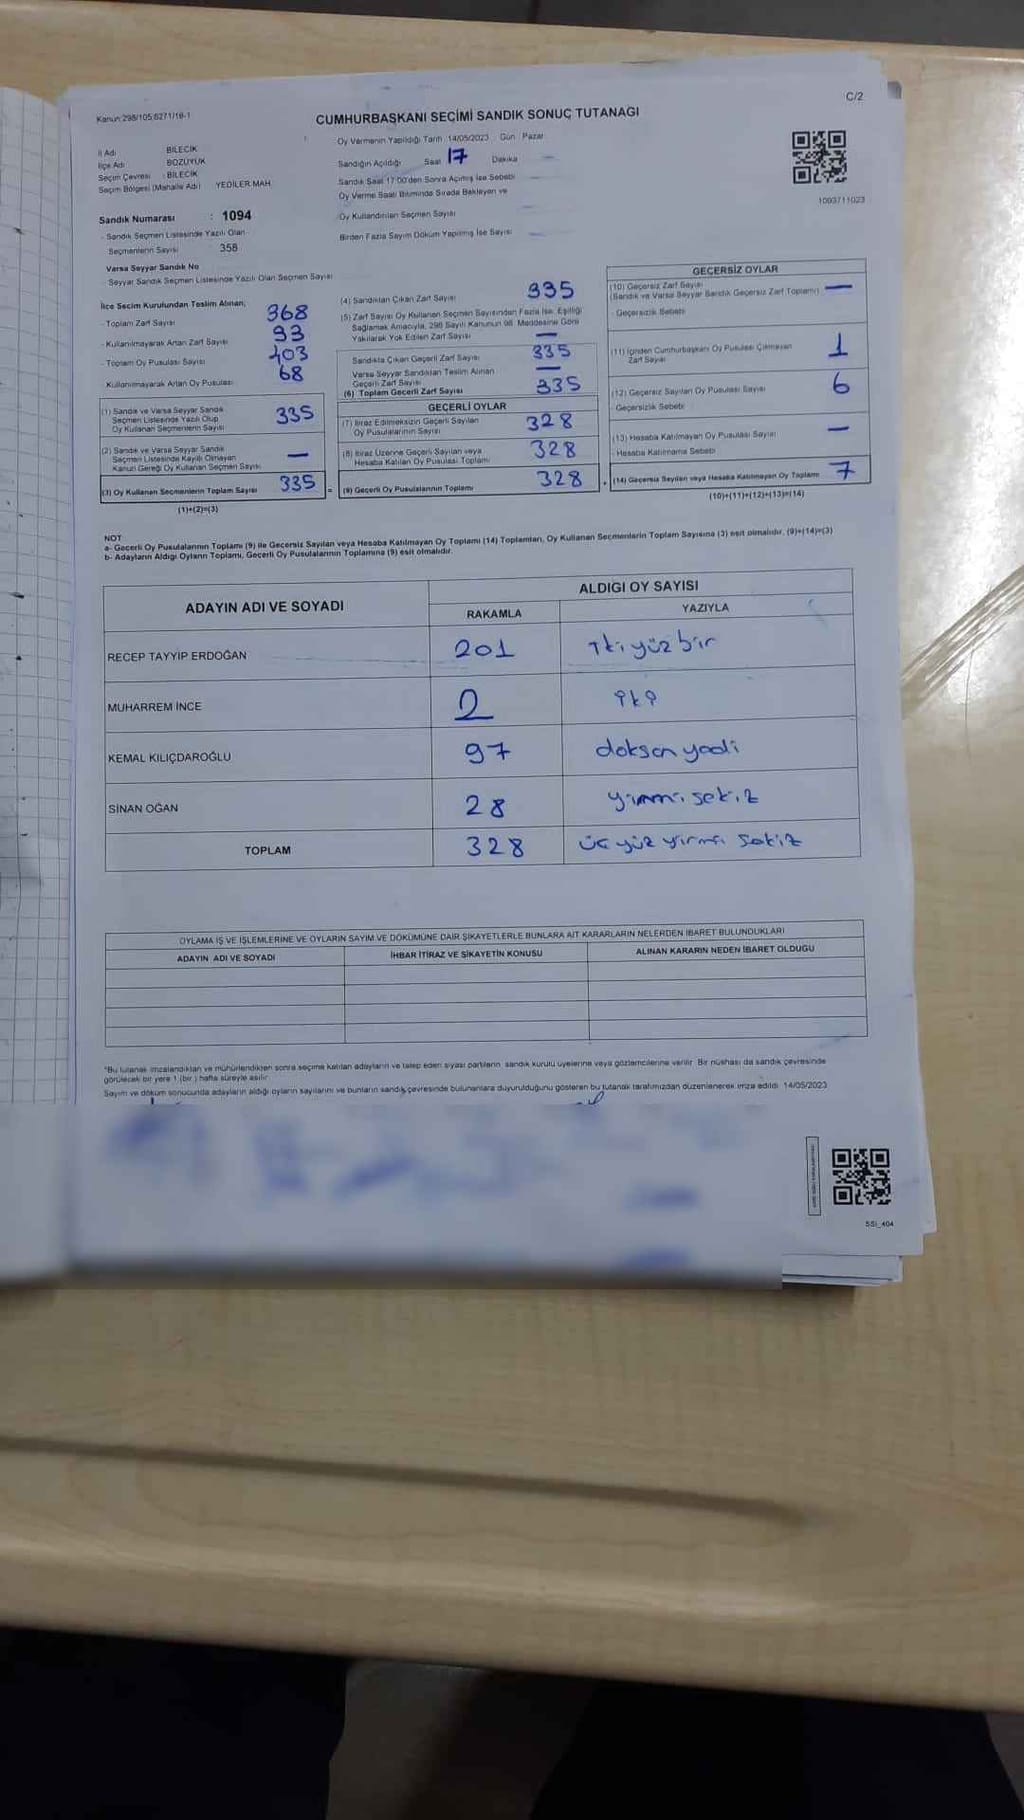 C/2
Kanun:298/105,6271/18-1
CUMHURBAŞKANI SEÇİMİ SANDIK SONUÇ TUTANAĞI
İl Adı BİLECİK
İlçe Adı BOZÜYÜK
Seçim Çevresi : BİLECİK
Seçim Bölgesi (Mahalle Adı) YEDİLER MAH.
Oy Vermenin Yapıldığı Tarih 14/05/2023 Gün Pazar
Sandığın Açıldığı Saat 17 Dakika —
Sandık Saat 17:00'den Sonra Açılmış İse Sebebi
Oy Verme Saati Bitiminde Sırada Bekleyen ve
Oy Kullandırılan Seçmen Sayısı
Birden Fazla Sayım Döküm Yapılmış İse Sayısı —
1093711023
Sandık Numarası : 1094
- Sandık Seçmen Listesinde Yazılı Olan
Seçmenlerin Sayısı 358
Varsa Seyyar Sandık No
- Seyyar Sandık Seçmen Listesinde Yazılı Olan Seçmen Sayısı
İlçe Seçim Kurulundan Teslim Alınan;
- Toplam Zarf Sayısı 368
- Kullanılmayarak Artan Zarf Sayısı 33
- Toplam Oy Pusulası Sayısı 403
Kullanılmayarak Artan Oy Pusulası 68
(1) Sandık ve Varsa Seyyar Sandık
Seçmen Listesinde Yazılı Olup
Oy Kullanan Seçmenlerin Sayısı 335
(2) Sandık ve Varsa Seyyar Sandık
Seçmen Listesinde Kayıtlı Olmayan
Kanun Gereği Oy Kullanan Seçmen Sayısı —
(3) Oy Kullanan Seçmenlerin Toplam Sayısı 335
(1)+(2)=(3)
(4) Sandıktan Çıkan Zarf Sayısı 335
(5) Zarf Sayısı Oy Kullanan Seçmen Sayısından Fazla İse, Eşitliği
Sağlamak Amacıyla, 298 Sayılı Kanunun 98. Maddesine Göre
Yakılarak Yok Edilen Zarf Sayısı —
Sandıkta Çıkan Geçerli Zarf Sayısı 335
Varsa Seyyar Sandıktan Teslim Alınan
Geçerli Zarf Sayısı —
(6) Toplam Geçerli Zarf Sayısı 335
GEÇERLİ OYLAR
(7) İtiraz Edilmeksizin Geçerli Sayılan
Oy Pusulalarının Sayısı 328
(8) İtiraz Üzerine Geçerli Sayılan veya
Hesaba Katılan Oy Pusulası Toplamı 328
(9) Geçerli Oy Pusulalarının Toplamı 328
GEÇERSİZ OYLAR
(10) Geçersiz Zarf Sayısı
(Sandık ve Varsa Seyyar Sandık Geçersiz Zarf Toplamı) —
- Geçersizlik Sebebi
(11) İçinden Cumhurbaşkanı Oy Pusulası Çıkmayan
Zarf Sayısı 1
(12) Geçersiz Sayılan Oy Pusulası Sayısı 6
Geçersizlik Sebebi
(13) Hesaba Katılmayan Oy Pusulası Sayısı —
- Hesaba Katılmama Sebebi
(14) Geçersiz Sayılan veya Hesaba Katılmayan Oy Toplamı 7
(10)+(11)+(12)+(13)=(14)
NOT
a- Geçerli Oy Pusulalarının Toplamı (9) ile Geçersiz Sayılan veya Hesaba Katılmayan Oy Toplamı (14) Toplamları, Oy Kullanan Seçmenlerin Toplam Sayısına (3) eşit olmalıdır. (9)+(14)=(3)
b- Adayların Aldığı Oyların Toplamı, Geçerli Oy Pusulalarının Toplamına (9) eşit olmalıdır.
ADAYIN ADI VE SOYADI ALDIĞI OY SAYISI
RAKAMLA YAZIYLA
RECEP TAYYİP ERDOĞAN 201 İkiyüz bir
MUHARREM İNCE 2 iki
KEMAL KILIÇDAROĞLU 97 doksan yedi
SİNAN OĞAN 28 yirmi sekiz
TOPLAM 328 üç yüz yirmi sekiz
OYLAMA İŞ VE İŞLEMLERİNE VE OYLARIN SAYIM VE DÖKÜMÜNE DAİR ŞİKAYETLERLE BUNLARA AİT KARARLARIN NELERDEN İBARET BULUNDUKLARI
ADAYIN ADI VE SOYADI İHBAR İTİRAZ VE ŞİKAYETİN KONUSU ALINAN KARARIN NEDEN İBARET OLDUĞU
*Bu tutanak imzalandıktan ve mühürlendikten sonra seçime katılan adayların ve talep eden siyasi partilerin sandık kurulu üyelerine veya gözlemcilerine verilir. Bir nüshası da sandık çevresinde
görülecek bir yere 1 (bir) hafta süreyle asılır.
Sayım ve döküm sonucunda adayların aldığı oyların sayılarını ve bunların sandık çevresinde bulunanlara duyurulduğunu gösteren bu tutanak tarafımızdan düzenlenerek imza edildi. 14/05/2023
SSİ_404